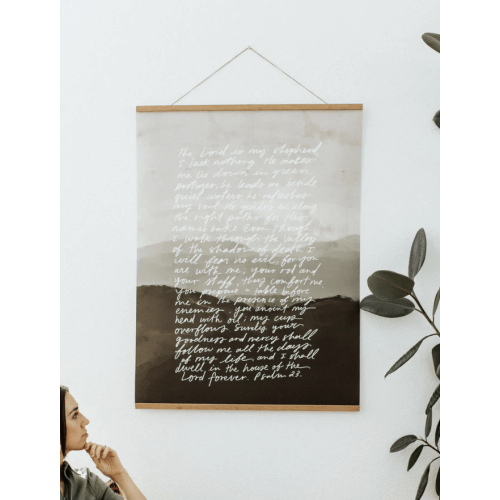 The Lord is my shepherd
I lack nothing. He makes
me lie down in green
pastures, he leads me beside
quiet waters he refreshes
my soul. He guides me along
the right paths for his
name's sake Even though
I walk through the valley
of the shadow of death, I
will fear no evil, for you
are with me; your rod and
your staff, they comfort me
You prepare a table before
me in the presence of my
enemies. you anoint my
head with oil; my cup
overflows Surely your
goodness and mercy shall
follow me all the days
of my life and I shall
dwell in the house of the
Lord forever. Psalm 23.